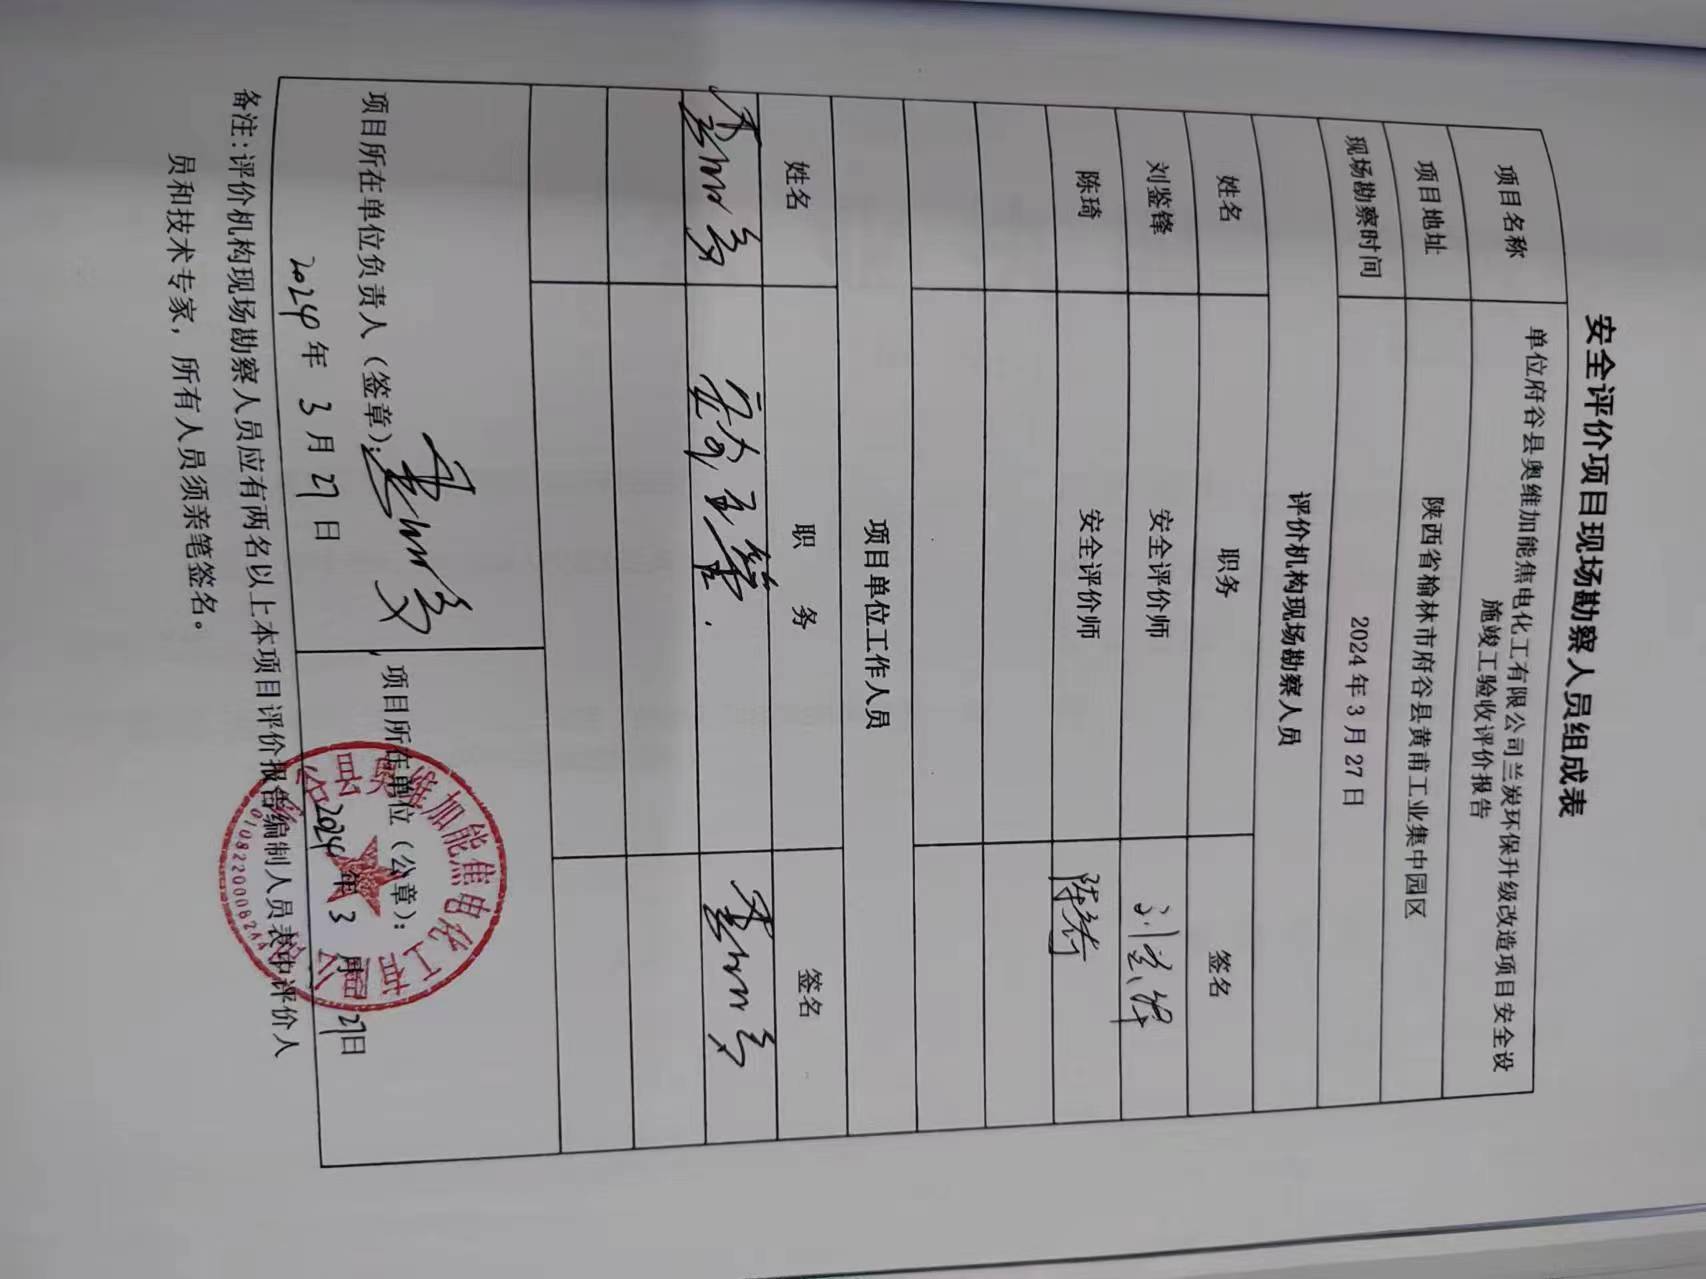 安全评价项目现场勘察人员组成表
项目名称
单位府谷县奥维加能焦电化工有限公司兰炭环保升级改造项目安全设
施竣工验收评价报告
项目地址
陕西省榆林市府谷县黄甫工业集中园区
现场勘察时间
2024年3月27日
评价机构现场勘察人员
姓名 职务 签名
刘鉴锋 安全评价师 刘鉴锋
陈琦 安全评价师 陈琦
项目单位工作人员
姓名 职 务 签名
安全主管.
项目所在单位负责人（签章）：
2024年3月27日
项目所在单位（公章）：
2024年3月27日
谷县奥维加能焦电化工有限公司
备注：评价机构现场勘察人员应有两名以上本项目评价报告编制人员表中评价人
员和技术专家，所有人员须亲笔签名。